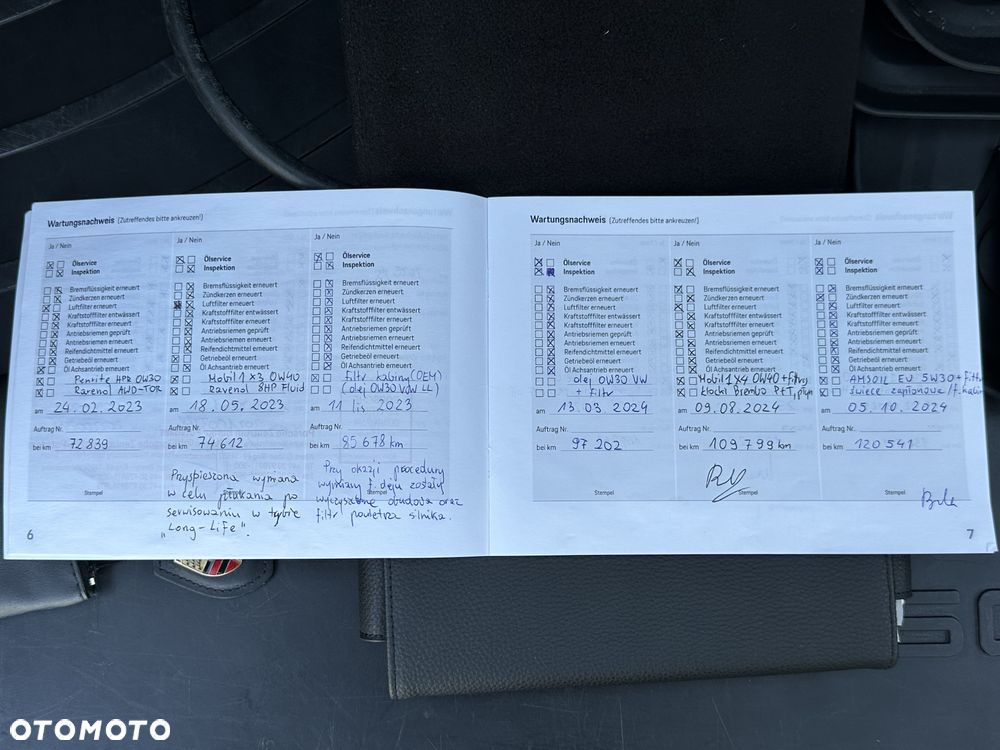 Wartungsnachweis (Zutreffendes bitte ankreuzen!)
Ja / Nein
Ölservice
Inspektion
Bremsflüssigkeit erneuert
Zündkerzen erneuert
Luftfilter erneuert
Kraftstofffilter entwässert
Kraftstofffilter erneuert
Antriebsriemen geprüft
Antriebsriemen erneuert
Reifendichtmittel erneuert
Getriebeöl erneuert
Öl Achsantrieb erneuert
Penrite HPR 0W30
Ravenol AWD-TOR
am 24.02.2023
Auftrag Nr.
bei km 72 839
Stempel
6
Ja / Nein
Ölservice
Inspektion
Bremsflüssigkeit erneuert
Zündkerzen erneuert
Luftfilter erneuert
Kraftstofffilter entwässert
Kraftstofffilter erneuert
Antriebsriemen geprüft
Antriebsriemen erneuert
Reifendichtmittel erneuert
Getriebeöl erneuert
Öl Achsantrieb erneuert
Mobil 1 x3 0W40
Ravenol 8HP Fluid
am 18.05.2023
Auftrag Nr.
bei km 74 612
Przyspieszona wymiana
w celu płukania po
Stempel
serwisowaniu w trybie
„Long-Life".
Ja / Nein
Ölservice
Inspektion
Bremsflüssigkeit erneuert
Zündkerzen erneuert
Luftfilter erneuert
Kraftstofffilter entwässert
Kraftstofffilter erneuert
Antriebsriemen geprüft
Antriebsriemen erneuert
Reifendichtmittel erneuert
Getriebeöl erneuert
Öl Achsantrieb erneuert
filtr kabiny (OEM)
(olej 0W30 VW LL)
am 11 lis 2023
Auftrag Nr.
bei km 85 678 km
Przy okazji procedury
wymiany f. oleju zostały
wyczyszczone obudowa oraz
Stempel
filtr powietrza silnika.
Wartungsnachweis (Zutreffendes bitte ankreuzen!)
Ja / Nein
Ölservice
Inspektion
Bremsflüssigkeit erneuert
Zündkerzen erneuert
Luftfilter erneuert
Kraftstofffilter entwässert
Kraftstofffilter erneuert
Antriebsriemen geprüft
Antriebsriemen erneuert
Reifendichtmittel erneuert
Getriebeöl erneuert
Öl Achsantrieb erneuert
olej 0W30 VW
+ filtr
am 13.03.2024
Auftrag Nr.
bei km 97 202
Stempel
Ja / Nein
Ölservice
Inspektion
Bremsflüssigkeit erneuert
Zündkerzen erneuert
Luftfilter erneuert
Kraftstofffilter entwässert
Kraftstofffilter erneuert
Antriebsriemen geprüft
Antriebsriemen erneuert
Reifendichtmittel erneuert
Getriebeöl erneuert
Öl Achsantrieb erneuert
Mobil 1 x4 0W40 + filtry
klocki Brembo P+T, płyn
am 09.08.2024
Auftrag Nr.
bei km 109 799 km
Stempel
Ja / Nein
Ölservice
Inspektion
Bremsflüssigkeit erneuert
Zündkerzen erneuert
Luftfilter erneuert
Kraftstofffilter entwässert
Kraftstofffilter erneuert
Antriebsriemen geprüft
Antriebsriemen erneuert
Reifendichtmittel erneuert
Getriebeöl erneuert
Öl Achsantrieb erneuert
AMSOIL EU 5W30 + filtr
świece zapłonowe / f. kabin
am 05.10.2024
Auftrag Nr.
bei km 120 541
Stempel
7
OTOMOTO